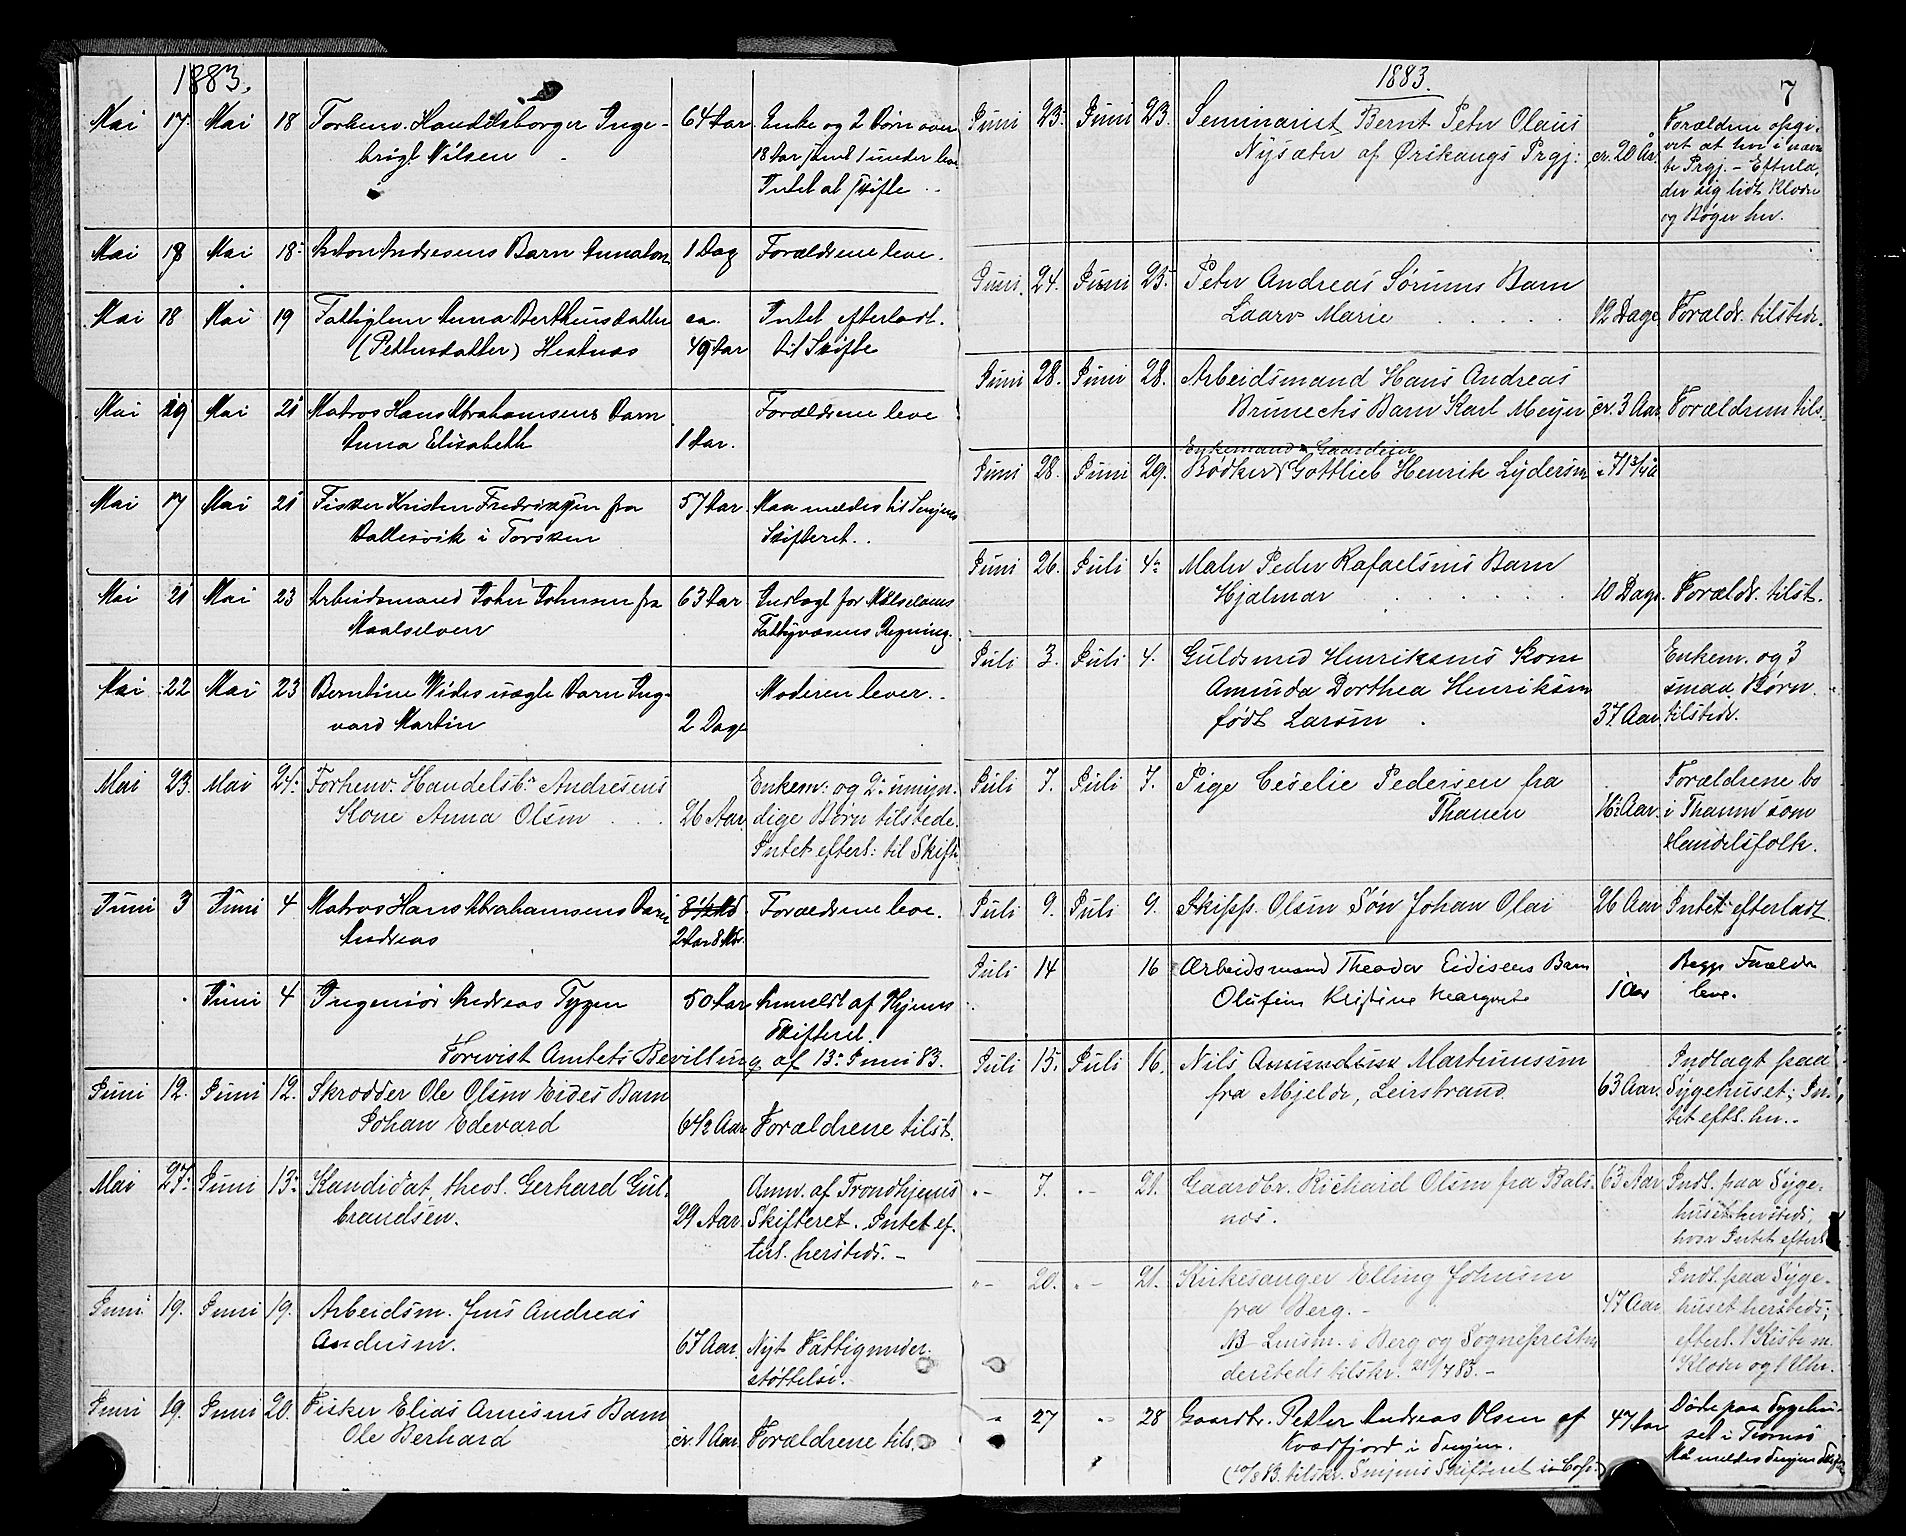 1883.
Mai 17 Mai 18 Forhenv. Handelsborger Inge- 64 Aar Enke og 2 Børn over
brigt Nilsen 18 Aar samt 1 under leve
Intet at skifte
Mai 18 Mai 18 Anton Andresens Barn 1 Dag Forældrene leve.
Mai 18 Mai 19 Fattiglem Anna Bertheusdatter ca. Intet efterladt
(Pettersdatter) Hestnæs 49 Aar til Skifte
Mai 19 Mai 21 Matros Hans Abrahamsens Barn Forældrene leve
Anna Elisabeth 1 Aar.
Mai 17 Mai 21 Fisker Kristen Fredriksen fra 57 Aar. Maa meldes til Senjens
Ballesvik i Torsken Skifteret.
Mai 21 Mai 23 Arbeidsmand John Johnsen fra 63 Aar Indlagt for Målselvens
Maalselven Fattigvæsens Regning.
Mai 22 Mai 23 Berntine Wides uægte Barn Ing- Moderen lever.
vard Martin 2 Dage
Mai 23. Mai 24. Forhenv. Handelsb. Andresens Enkem. og 2 umyn-
Kone Anna Olsen 26 Aar. dige Børn tilstede.
Intet efterl. til Skifte
Juni 3 Juni 4 Matros Hans Abrahamsens Barn 8 1/2 Md. Forældrene leve.
Andreas 2 Aar 8 Mdr.
Juni 4 Ingeniør Andreas Tygen 50 Aar Anmeldt af Hjems
Skifteret.
Forevist Amtets Bevilling af 13 Juni 83.
Juni 12. Juni 12. Skrædder Ole Olsen Eides Barn
Johan Edevard 6 1/2 Aar Forældrene tilst.
Mai 27. Juni 13. Kandidat theol. Gerhard Gul- Anm. af Trondhjems
brandsen. 29 Aar. Skifteret. Intet ef-
terl. hersteds. -
Juni 19. Juni 19. Arbeidsm. Jens Andreas
Andersen. 67 Aar. Nyt Fattigunder-
støttelse.
Juni 19. Juni 20. Fisker Elias Arnesens Barn
Ole Berhard cr. 1 Aar. Forældrene tils.
1883. 7
Juni 23. Juni 23. Seminarist Bernt Peter Olaus Forældrene opgi-
Nysæter af Ørskougs Prgj: cr. 20 Aar. vet at bo i nævn-
te Prgj. - Efterla-
der sig lidt Klæder
og Bøger her.
Juni 24. Juni 25. Peter Andreas Sørums Barn
Laura Marie 12 Dage Forældr. tilstede.
Juni 28. Juni 28. Arbeidsmand Hans Andreas
Brunechs Barn Karl Meyer cr. 3 Aar. Forældrene tils.
Enkemand Gaardeier
Juni 28. Juni 29. Bødker Gottlieb Henrik Lydersen 71 3/4
Juni 26. Juli 4. Maler Peder Rafaelsens Barn
Hjalmar 10 Dage. Forældr. tilst.
Juli 3. Juli 4. Guldsmed Henriksens Kone Enkem. og 3
Aminda Dorthea Henriksen smaa Børn
født Larsen 37 Aar. tilstede.
Juli 7. Juli 7. Pige Ceselie Pedersen fra Forældrene bo
Thanen 16 Aar. i Thanen som
Handelsfolk.
Juli 9. Juli 9. Skipp. Olsen Søn Johan Olai 26 Aar Intet efterladt
Juli 14 16 Arbeidsmand Theodor Eidisens Barn Begge Forældre
Olufine Kristine Margrete 1 Aar leve.
Juli 15. Juli 16. Nils Amundsen Martinussen Indlagt paa
fra Mjelde, Leirstrand 63 Aar. Sygehuset; In-
tet eftl. her.
"- 7. "- 21. Gaardbr. Richard Olsen fra Bals- 63 Aar Indl. paa Syge-
nos. huset hersteds,
hvor Intet efterl.
"- 20. "- 21. Kirkesanger Elling Johnsen Indl. paa Syge-
fra Berg. - 47 Aar huset hersteds;
NB Lensm. i Berg og Sognepresten efterl. 1 Kiste m.
dersteds tilskr. 21/7 83. - Klæder og 1 Uhr.
"- 27 "- 28 Gaardbr. Petter Andreas Olsen af 47 Aar Døde paa Sygehu-
Kvæfjord i Senjen. set i Tromsø
(10/8 83. tilskr. Senjens Skifteret Må meldes Senjens Skifte